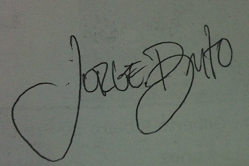 JORGE BRITO